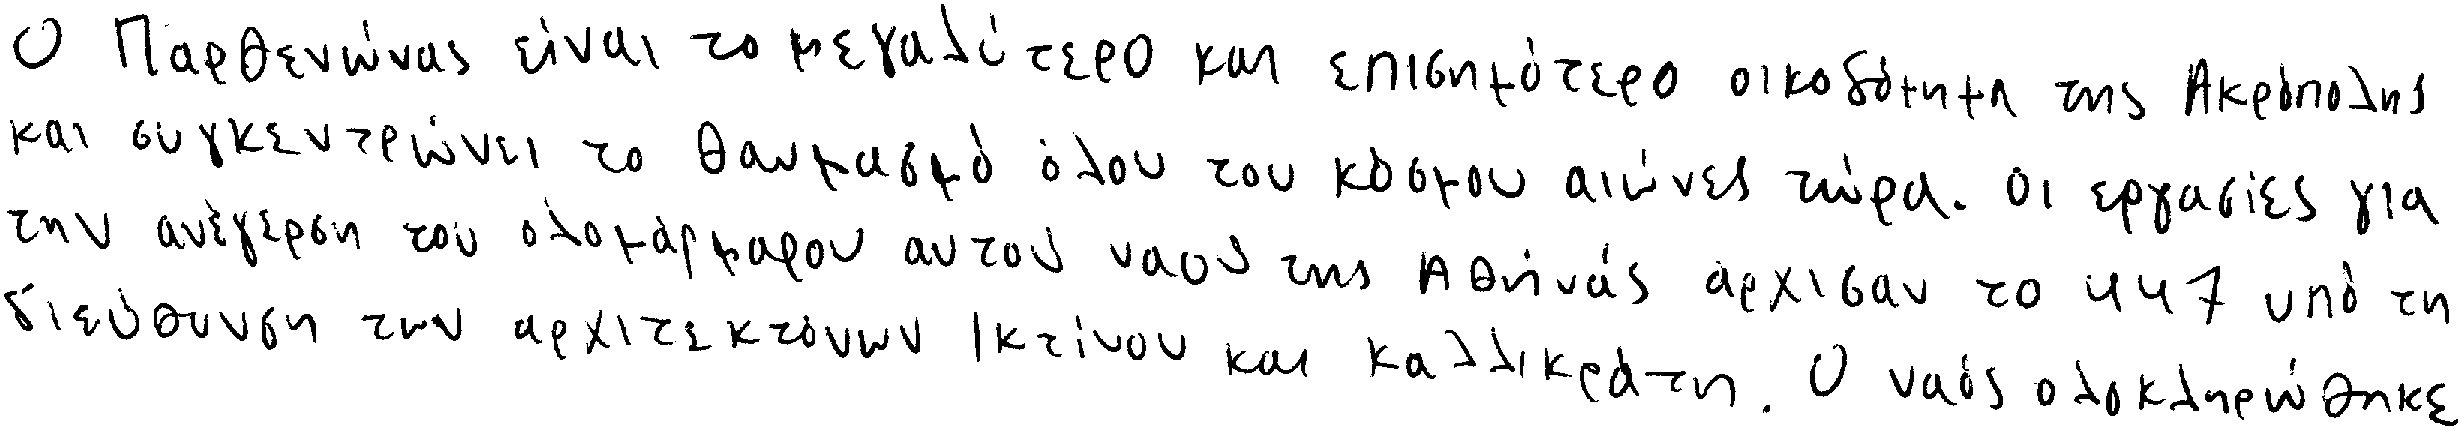 Ο Παρθενώνας είναι το μεγαλύτερο και επισημότερο οικοδόμημα της Ακρόπολης
και συγκεντρώνει το θαυμασμό όλου του κόσμου αιώνες τώρα. Οι εργασίες για
την ανέγερση του ολομάρμαρου αυτού ναού της Αθήνάς άρχισαν το 447 υπό τη
διεύθυνση των αρχιτεκτόνων Ικτίνου και Καλλικράτη. Ο ναός ολοκληρώθηκε